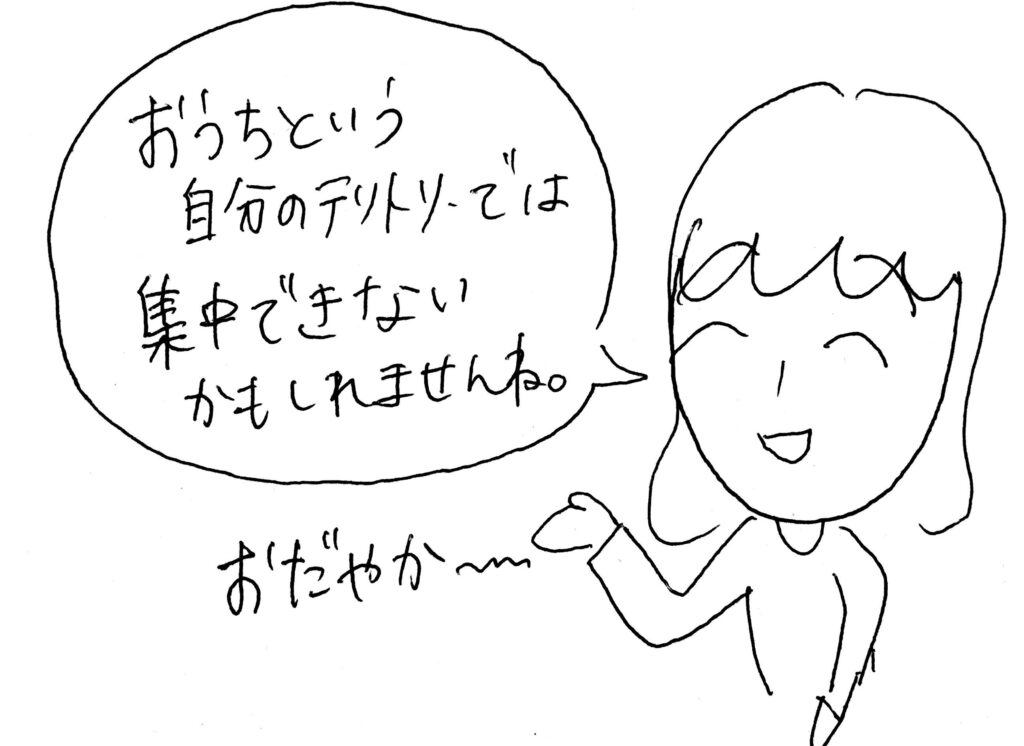 おうちという
自分のテリトリーでは
集中できない
かもしれませんね。
おだやか〜〜